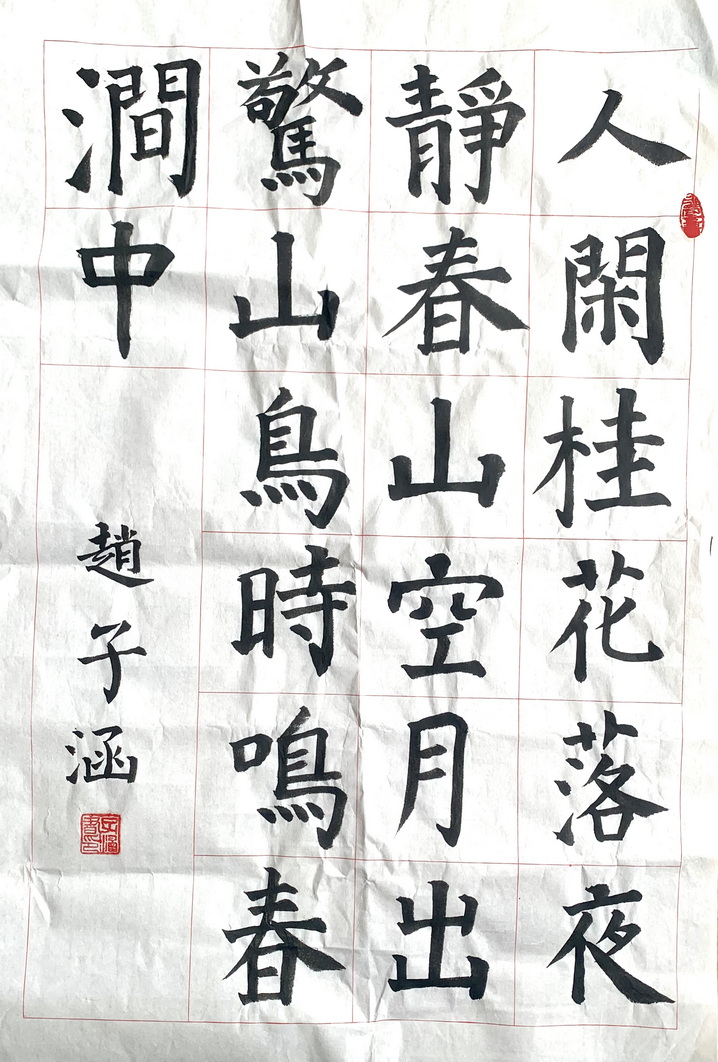 人閑桂花落夜
靜春山空月出
驚山鳥時鳴春
澗中
趙子涵